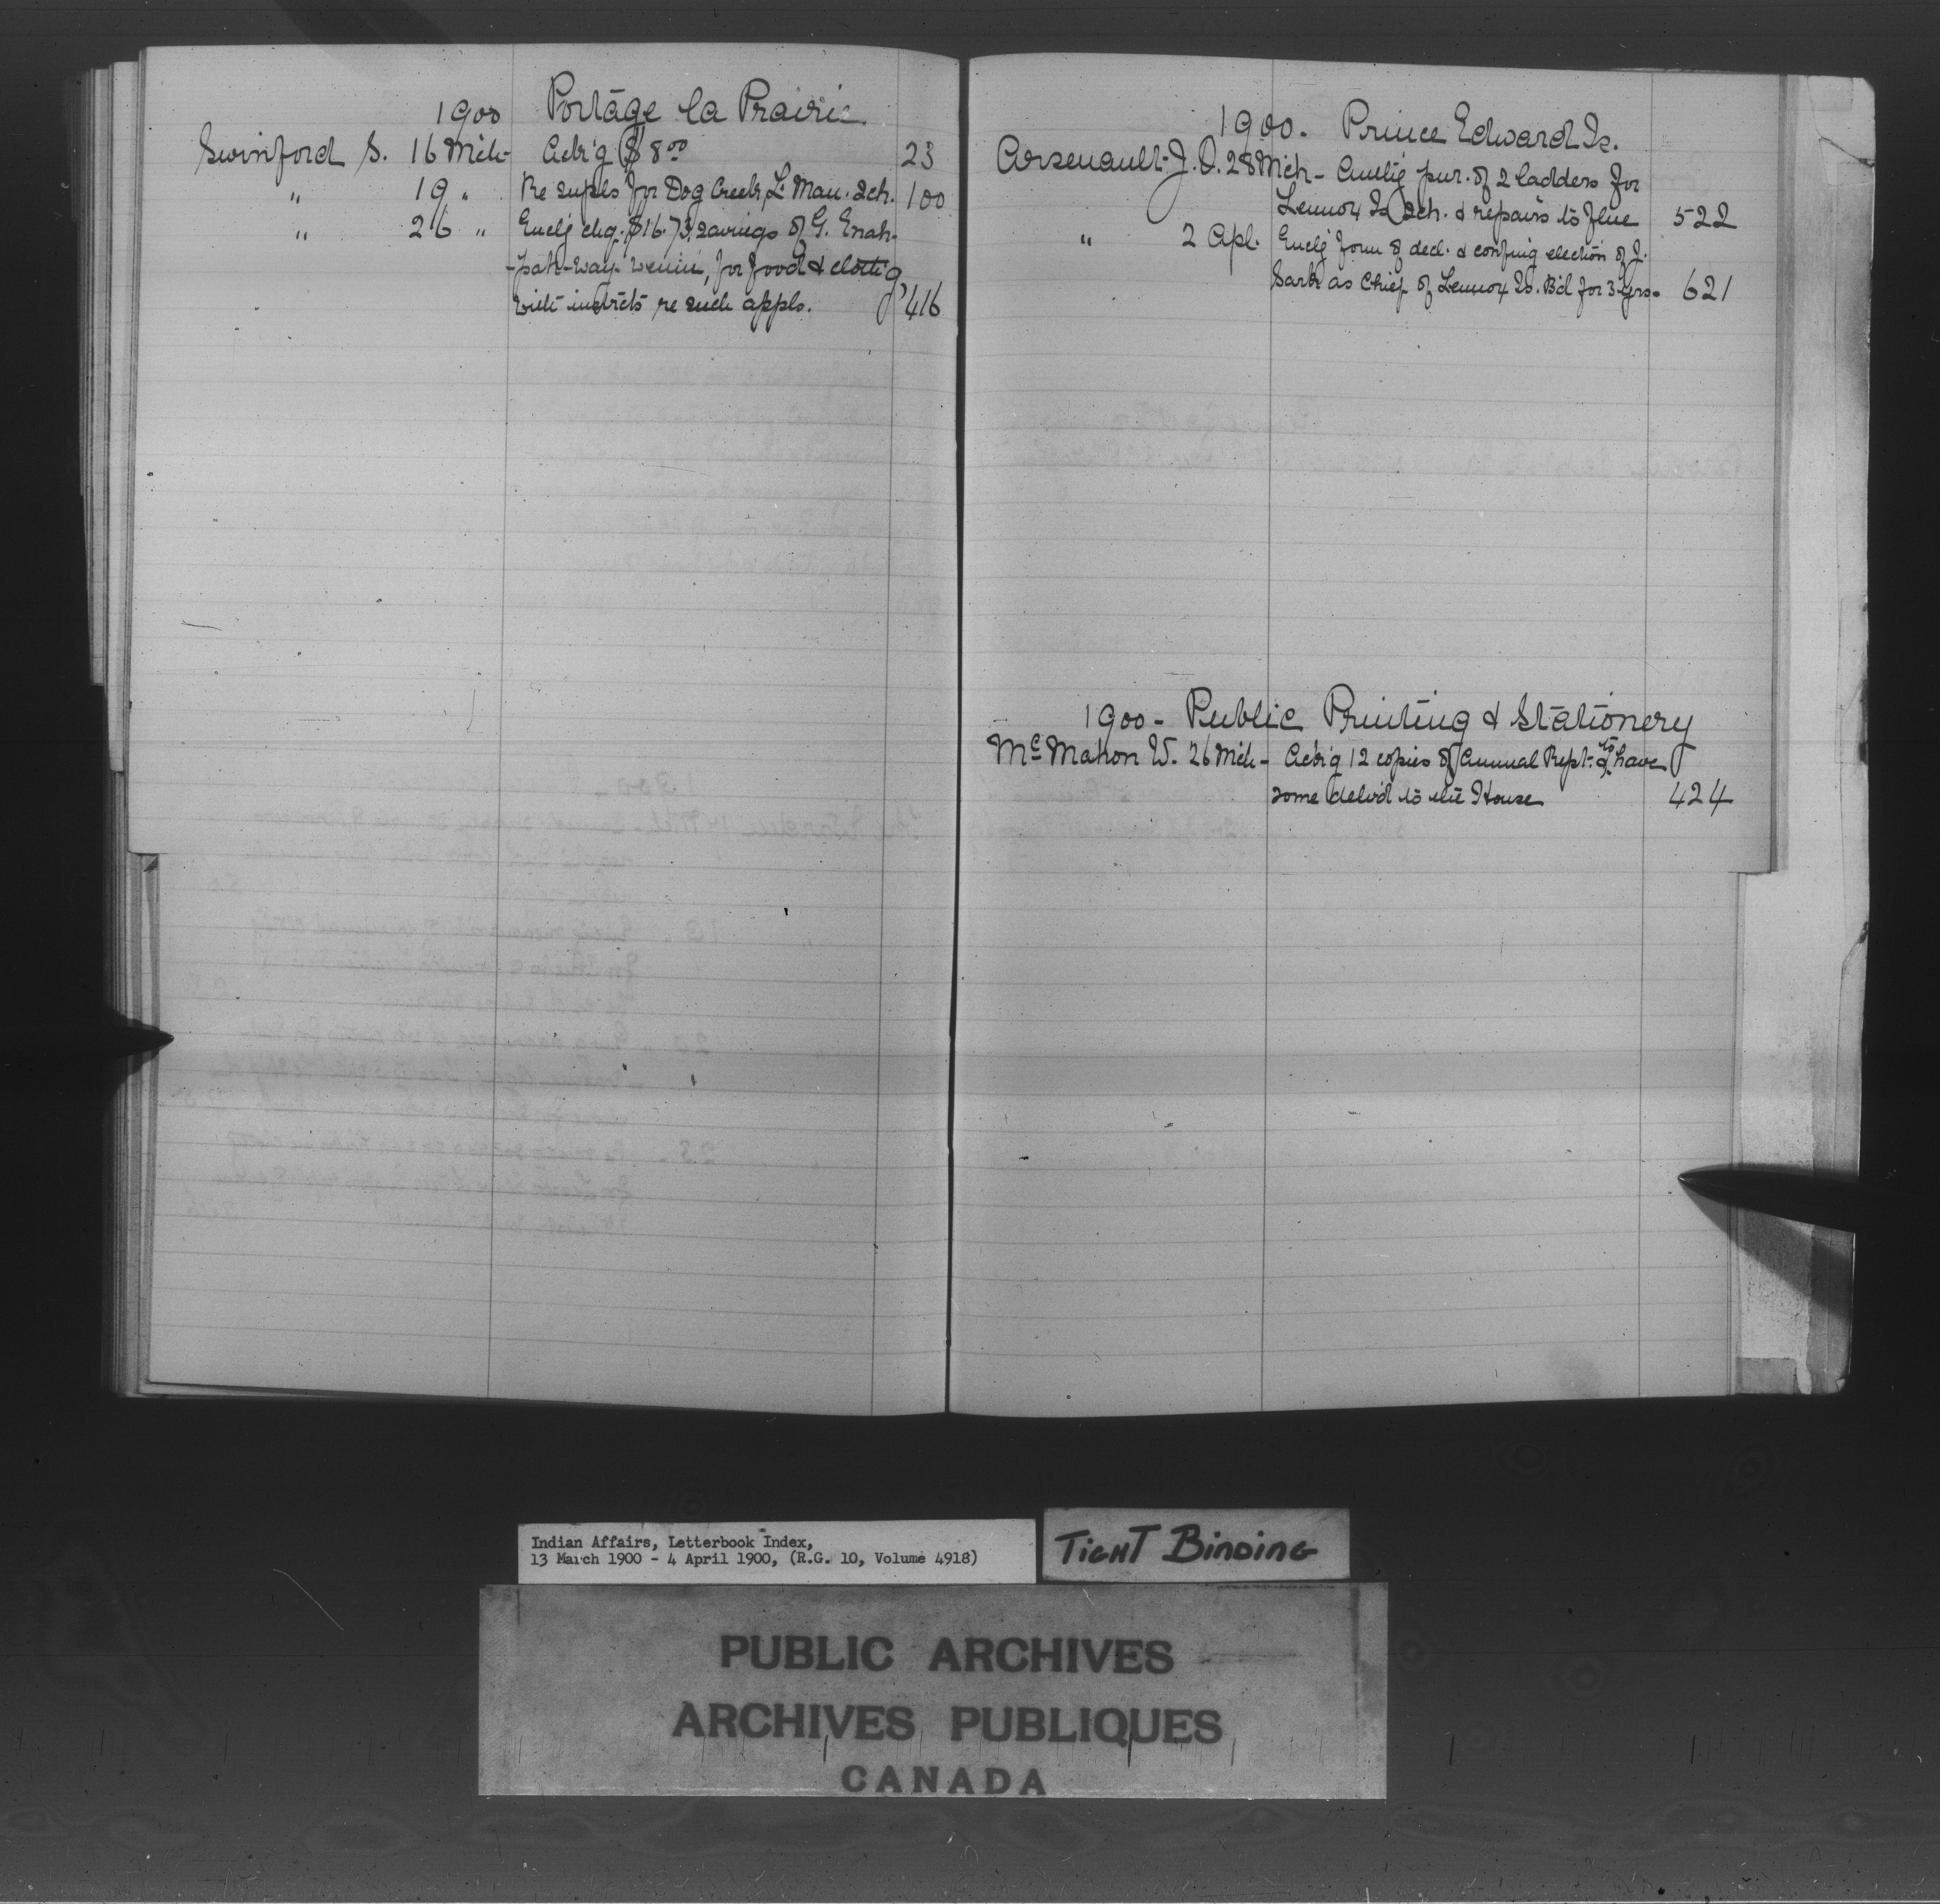 1900 Portage la Prairie.
Swinford S. 16 Mch- Ack'g $8.00 23
" 19 " Re suppls for Dog Creek, L. Man. Sch. 100
" 26 " Encl'g chq. $16.73, savings of G. Enah-
-pah-way-wenin, for food & clothi'g
with instrcts re such appls. 416
1900. Prince Edward Is.
Arsenault J. O. 28 Mch- Auth'g pur. of 2 ladders for
Lennox Is Sch. & repairs to flue 522
" 2 Apl. Encl'g form 8 decl. & confing election of J.
Sark as Chief of Lennox Is. B'd for 3 yrs. 621
1900- Public Printing & Stationery
McMahon W. 26 Mch- Ack'g 12 copies of Annual Rept. & to have
some deliv'd to the House 424
Indian Affairs, Letterbook Index,
13 March 1900 - 4 April 1900, (R.G. 10, Volume 4918)
TIGHT BINDING
PUBLIC ARCHIVES
ARCHIVES PUBLIQUES
CANADA